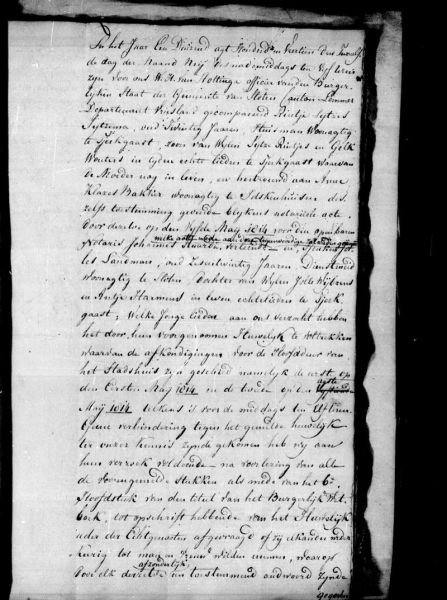 In het Jaar Een Duizend agt Honderd en Veertien den Twaalf
de dag der Maand Meij des nademiddags ten Vijf uren
zijn voor ons W. H. van
officier van den Burger
lijken Staat der Gemeente van Sloten Canton Lemmer
Departement Vriesland gecompareerd Rintje Sytzes
Sytzema, oud Twintig Jaaren, Huisman Woonagtig
te Tjerkgaast, zoon van Wylen Sytze Rintjes en
Wouters in leven echte lieden te Tjerkgaast waarvan
de Moeder nog in leven, en hertrouwd aan Anne
Klazes Bakker woonagtig te Idskenhuisen des
zelfs toestemming gevende blykens notarieele acte
door dezelve op den Vyfde May 1814 voor den openbaren
Notaris Johannes
les Landman, oud Zesentwintig Jaaren, Dienstmeid
woonagtig te Sloten, Dochter van Wylen Jolle Wybrens
en Antje Harmens in leven echtelieden te Tjerk
gaast; Welke Jonge lieden aan ons verzocht hebben
het door hun voorgenomen Huwelyk te voltrekken
waarvan de afkondigingen voor de Hoofddeur van
het Stadshuis zyn geschied namelyk de eerste op
den Eersten May 1814 en de tweede op den agste
May 1814 telkens voor de middags ten Elf uren
Geene verhindering tegen het gemelde huwelyk
ter onzer kennis zynde gekomen heb wy aan
hun verzoek voldoende na voorlezing van alle
de bovengemelde stukken als mede van het 6e
Hoofdstuk van den titul van het Burgerlyk Wet
boek, tot opschrift hebbende van het Huwelyk
ader der Echtgenooten afgevraagd of zy elkanderen
tot man en Vrouw wilden nemen, waarop
door elk derzelve afzonderlyk en toestemmend andwoord zynde
gegeeven